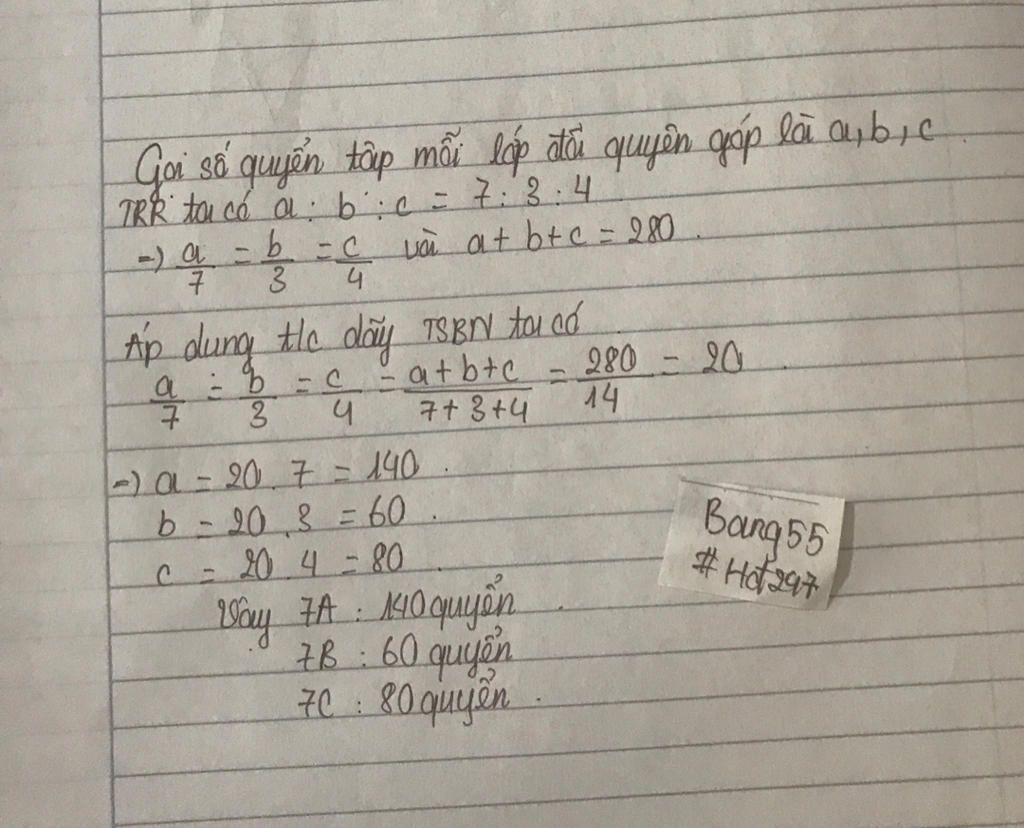 Gọi số quyển tập mỗi lớp đã quyên góp là a, b, c
ta có a : b : c = 7 : 3 : 4
=) a/7 = b/3 = c/4 và a + b + c = 280.
Áp dụng t/c dãy TSBN ta có
a/7 = b/3 = c/4 = a+b+c/7+3+4 = 280/14 = 20.
=) a = 20 . 7 = 140.
b = 20 . 3 = 60.
c = 20 . 4 = 80.
Vậy 7A : 140 quyển.
7B : 60 quyển
7C : 80 quyển.
Bang55
#Hot247